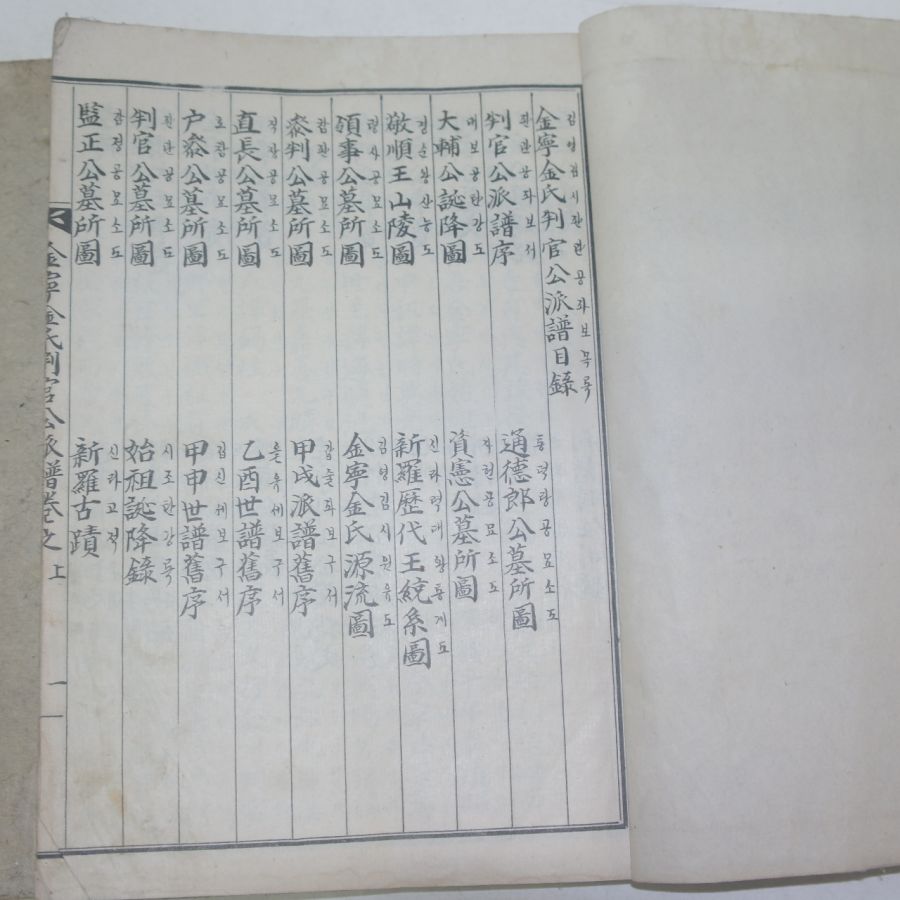 金寧金氏判官公派譜目錄
김영김시판관공파보목록
判官公派譜序
판관공파보서
通德郎公墓所圖
통덕랑공묘소도
大輔公誕降圖
대보공탄강도
資憲公墓所圖
자헌공묘소도
敬順王山陵圖
경순왕산능도
新羅歷代王統系圖
신라력대왕통게도
領事公墓所圖
령사공묘소도
金寧金氏源流圖
김영김시원유도
叅判公墓所圖
참판공묘소도
甲戌派譜舊序
갑슐파보구서
直長公墓所圖
직장공묘소도
乙酉世譜舊序
을유세보구서
户叅公墓所圖
호참공묘소도
甲申世譜舊序
갑신세보구서
判官公墓所圖
판관공묘소도
始祖誕降錄
시조탄강록
監正公墓所圖
감정공묘소도
新羅古蹟
신라고적
金寧金氏判官公派譜卷之上
一